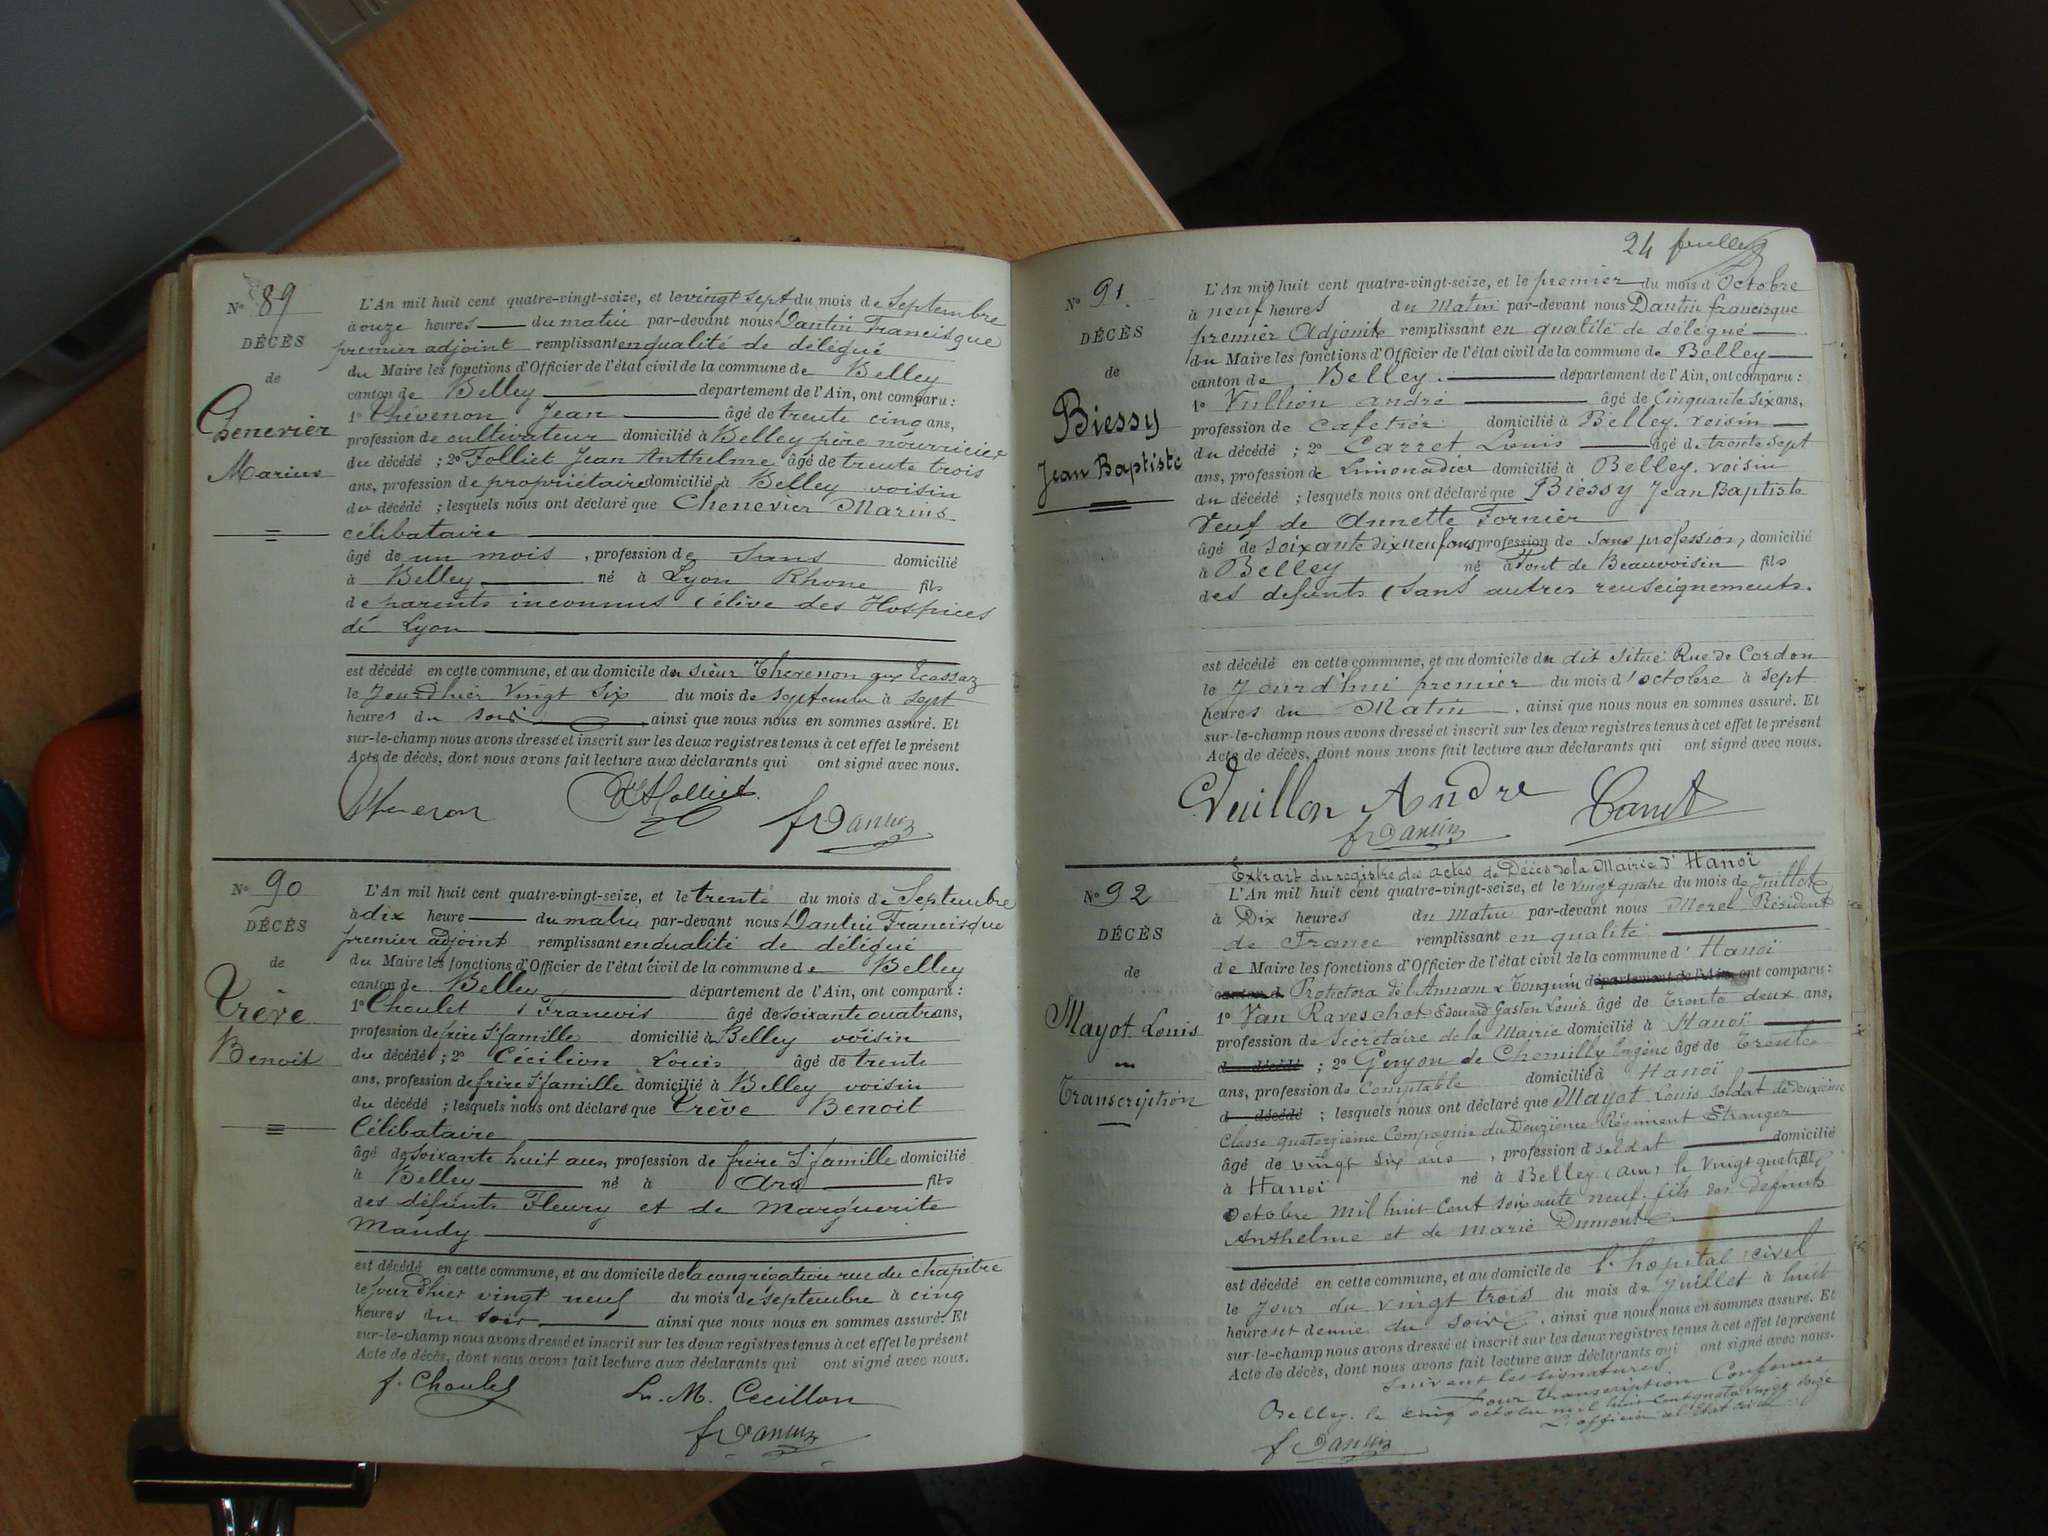 N° 89
DÉCÈS
de
Chenevier
Marius
L'An mil huit cent quatre-vingt-seize, et le vingt sept du mois de Septembre
à onze heures du matin par-devant nous Dantin Francisque
premier adjoint remplissant en qualité de délégué
du Maire les fonctions d'Officier de l'état civil de la commune de Belley
canton de Belley département de l'Ain, ont comparu :
1° Thévenon Jean âgé de trente cinq ans,
profession de cultivateur domicilié à Belley père nourricier
du décédé ; 2° Folliet Jean Anthelme âgé de trente trois
ans, profession de propriétaire domicilié à Belley voisin
du décédé ; lesquels nous ont déclaré que Chenevier Marius
célibataire
âgé de un mois, profession de Sans domicilié
à Belley né à Lyon Rhone fils
de parents inconnus (élève des Hospices
de Lyon
est décédé en cette commune, et au domicile du sieur Thevenon aux Ecassaz
le Jour d'hier vingt six du mois de septembre à sept
heures du soir ainsi que nous nous en sommes assuré. Et
sur-le-champ nous avons dressé et inscrit sur les deux registres tenus à cet effet le présent
Acte de décès, dont nous avons fait lecture aux déclarants qui ont signé avec nous.
f Dantin
N° 90
DÉCÈS
de
Trève
Benoit
L'An mil huit cent quatre-vingt-seize, et le trente du mois de Septembre
à dix heure du matin par-devant nous Dantin Francisque
premier adjoint remplissant en qualité de délégué
du Maire les fonctions d'Officier de l'état civil de la commune de Belley
canton de Belley département de l'Ain, ont comparu :
1° Choulet Francois âgé de soixante quatre ans,
profession de frère Ste famille domicilié à Belley voisin
du décédé ; 2° Cécilion Louis âgé de trente
ans, profession de frère Ste famille domicilié à Belley voisin
du décédé ; lesquels nous ont déclaré que Trève Benoit
Célibataire
âgé de soixante huit ans, profession de frère Ste famille domicilié
à Belley né à Ars fils
des défunts Fleury et de Marguerite
Mandy
est décédé en cette commune, et au domicile de la congrégation rue du chapitre
le jour d'hier vingt neuf du mois de septembre à cinq
heures du soir ainsi que nous nous en sommes assuré. Et
sur-le-champ nous avons dressé et inscrit sur les deux registres tenus à cet effet le présent
Acte de décès, dont nous avons fait lecture aux déclarants qui ont signé avec nous.
f. Choulet L. M. Cecillon
f Dantin
24 feuillet
N° 91
DÉCÈS
de
Biessy
Jean Baptiste
L'An mil huit cent quatre-vingt-seize, et le premier du mois d'Octobre
à neuf heures du Matin par-devant nous Dantin francisque
premier Adjoint remplissant en qualité de délégué
du Maire les fonctions d'Officier de l'état civil de la commune de Belley
canton de Belley. département de l'Ain, ont comparu :
1° Vullion andré âgé de Cinquante six ans,
profession de Cafetier domicilié à Belley. voisin
du décédé ; 2° Carret Louis âgé de trente sept
ans, profession de Limonadier domicilié à Belley. voisin
du décédé ; lesquels nous ont déclaré que Biessy Jean Baptiste
Veuf de Annette Fornier
âgé de soixante dix neuf ans profession de Sans profession, domicilié
à Belley né à Pont de Beauvoisin fils
des defunts (Sans autres renseignements.
est décédé en cette commune, et au domicile du dit situé Rue de Cordon
le Jourd'hui premier du mois d'octobre à sept
heures du Matin, ainsi que nous nous en sommes assuré. Et
sur-le-champ nous avons dressé et inscrit sur les deux registres tenus à cet effet le présent
Acte de décès, dont nous avons fait lecture aux déclarants qui ont signé avec nous.
Vuillon Andre Carret
f Dantin
Extrait du registre des actes de Décès de la Mairie d'Hanoï
N° 92
DÉCÈS
de
Mayot Louis
Transcription
L'An mil huit cent quatre-vingt-seize, et le vingt quatre du mois de Juillet
à Dix heures du Matin par-devant nous Morel Résident
de France remplissant en qualité
de Maire les fonctions d'Officier de l'état civil de la commune d'Hanoï
canton d Protectora de l'Annam & Tonquin département de l'Ain, ont comparu :
1° Van Raveschot Edouard Gaston Louis âgé de Trente deux ans,
profession de Sécrétaire de la Mairie domicilié à Hanoï
d décédé ; 2° Guyon de Chemilly Eugène âgé de Trente
ans, profession de Comptable domicilié à Hanoï
d décédé ; lesquels nous ont déclaré que Mayot Louis soldat de deuxième
Classe quatorzième Compagnie du Deuxième Régiment Etranger
âgé de vingt six ans, profession d soldat domicilié
à Hanoï né à Belley (ain) le vingt quatre
Octobre mil huit Cent soixante neuf. fils des défunts
Anthelme et de Marie Dumont
est décédé en cette commune, et au domicile de l'hopital civil
le Jour du vingt trois du mois de Juillet à huit
heures et demie du soir, ainsi que nous nous en sommes assuré. Et
sur-le-champ nous avons dressé et inscrit sur les deux registres tenus à cet effet le présent
Acte de décès, dont nous avons fait lecture aux déclarants qui ont signé avec nous.
Suivent les signatures
Pour transcription Conforme
Belley. le cinq octobre mil huit cent quatre vingt seize
L'officier de l'état civil
f Dantin